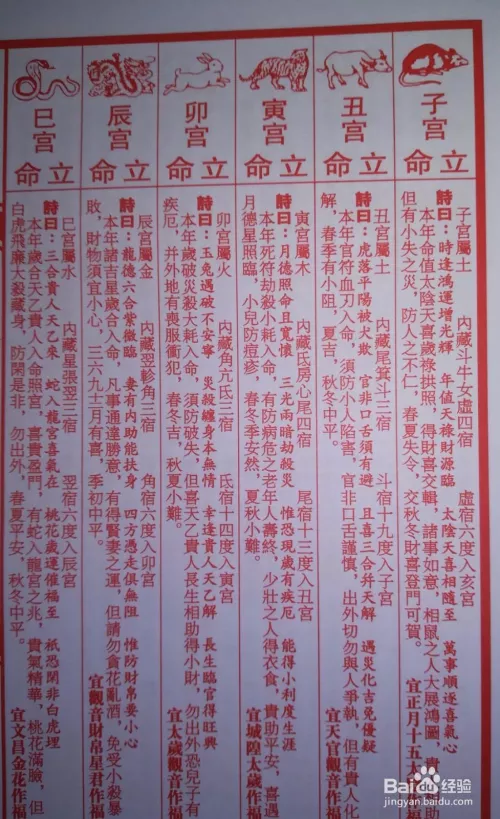 子宫
立命
子宮屬土　內藏斗牛女虛四宿　虛宿六度入亥宮
詩曰：時逢鴻運增光輝　年值天祿財源臨　太陰天喜相隨至　萬事順遂喜氣心
本年命值太陰天喜歲祿拱照，得財喜交輯，諸事如意，相鼠之人大展鴻圖，貴
助
但有小失之災，防人之不仁，春夏失令，交秋冬財喜登門可賀。
宜正月十五
作福
丑宫
立命
丑宮屬土　內藏尾箕斗三宿　斗宿十九度入子宮
詩曰：虎落平陽被犬欺　官非口舌須有避　且喜三合并天解　遇災化吉免優疑
本年官符血刃入命，須防小人陷害，官非口舌謹慎，出外切勿與人爭執，但有貴人化
解，春季有小阻，夏吉，秋冬中平。
宜天官觀音作福
寅宫
立命
寅宮屬木　內藏氐房心尾四宿　尾宿十三度入丑宮
詩曰：月德照命且寬懷　三光兩暗劫殺災　惟恐現歲有疾厄　能得小利度生涯
本年死符劫殺小耗入命，有防病危之老年人壽終，少壯之人得衣食，貴助平安，喜遇
月德星照臨，小兒防痘疹，春冬季安然，夏秋小難。
宜城隍太歲作福
卯宫
立命
卯宮屬火　內藏角亢氐三宿　氐宿十四度入寅宮
詩曰：玉兔遇破不安寧　災殺纏身本無情　幸逢貴人天乙解　長生臨官得旺興
本年歲破災殺大耗入命，須防破失，但喜天乙貴人長生相助得小財，勿出外恐兒子有
疾厄，并外地有喪服衝犯，春冬吉，秋夏小難。
宜太歲觀音作福
辰宫
立命
辰宮屬金　內藏翌軫角三宿　角宿六度入卯宮
詩曰：龍德六合紫微臨　妻有內助能扶身　四方憑走俱無阻　惟防財帛要小心
本年諸吉星歲合入命，凡事通達勝意，有得賢妻之運，但請勿貪花亂酒，免受小殺暴
敗，財物須宜小心，三六九十二月有喜，季初中平。
宜觀音財帛星君作福
巳宫
立命
巳宮屬水　內藏星張翌三宿　翌宿六度入辰宮
詩曰：三合貴人天乙來　蛇入龍宮喜氣在　桃花歲運催福至　祇恐閑非白虎埋
本年歲合天乙貴人入命照宮，喜貴盈門，有蛇入龍宮之兆，貴氣精華，桃花滿臉，但
白虎飛廉大殺藏身，防閑是非，勿出外，春夏平安，秋冬中平。
宜文昌金花作福
Baidu 经验
jingyan.baidu.com